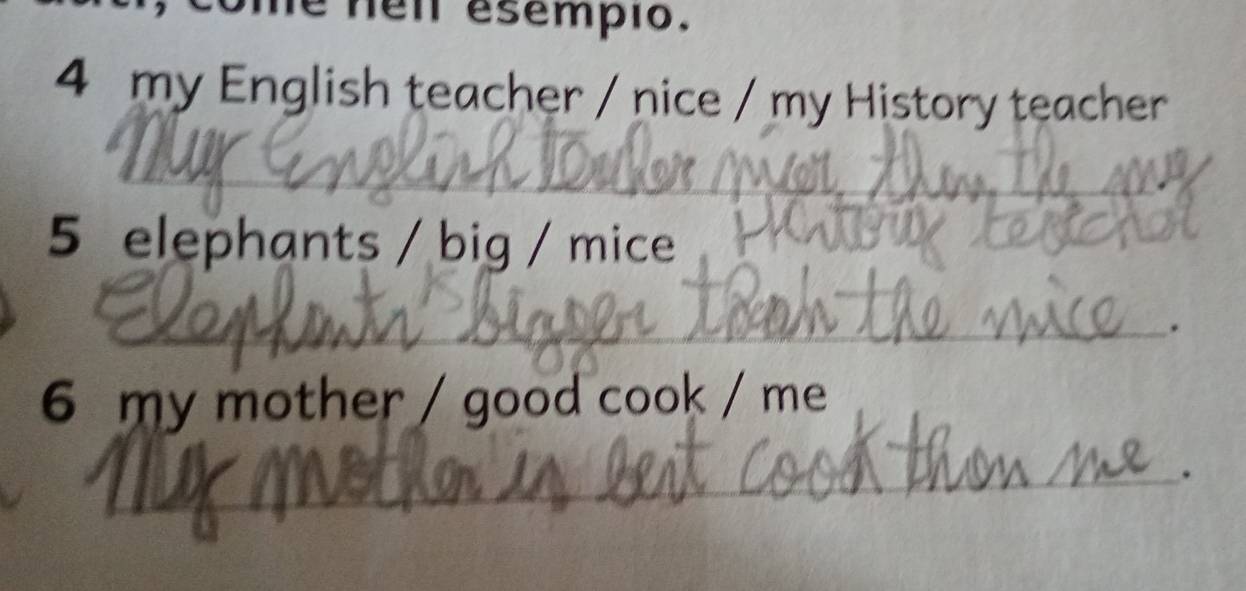 come nell'esempio.
4 my English teacher / nice / my History teacher
My English nicer than the my
5 elephants / big / mice
History teacher
Elephants bigger than the mice.
6 my mother / good cook / me
My mother is best cook than me.